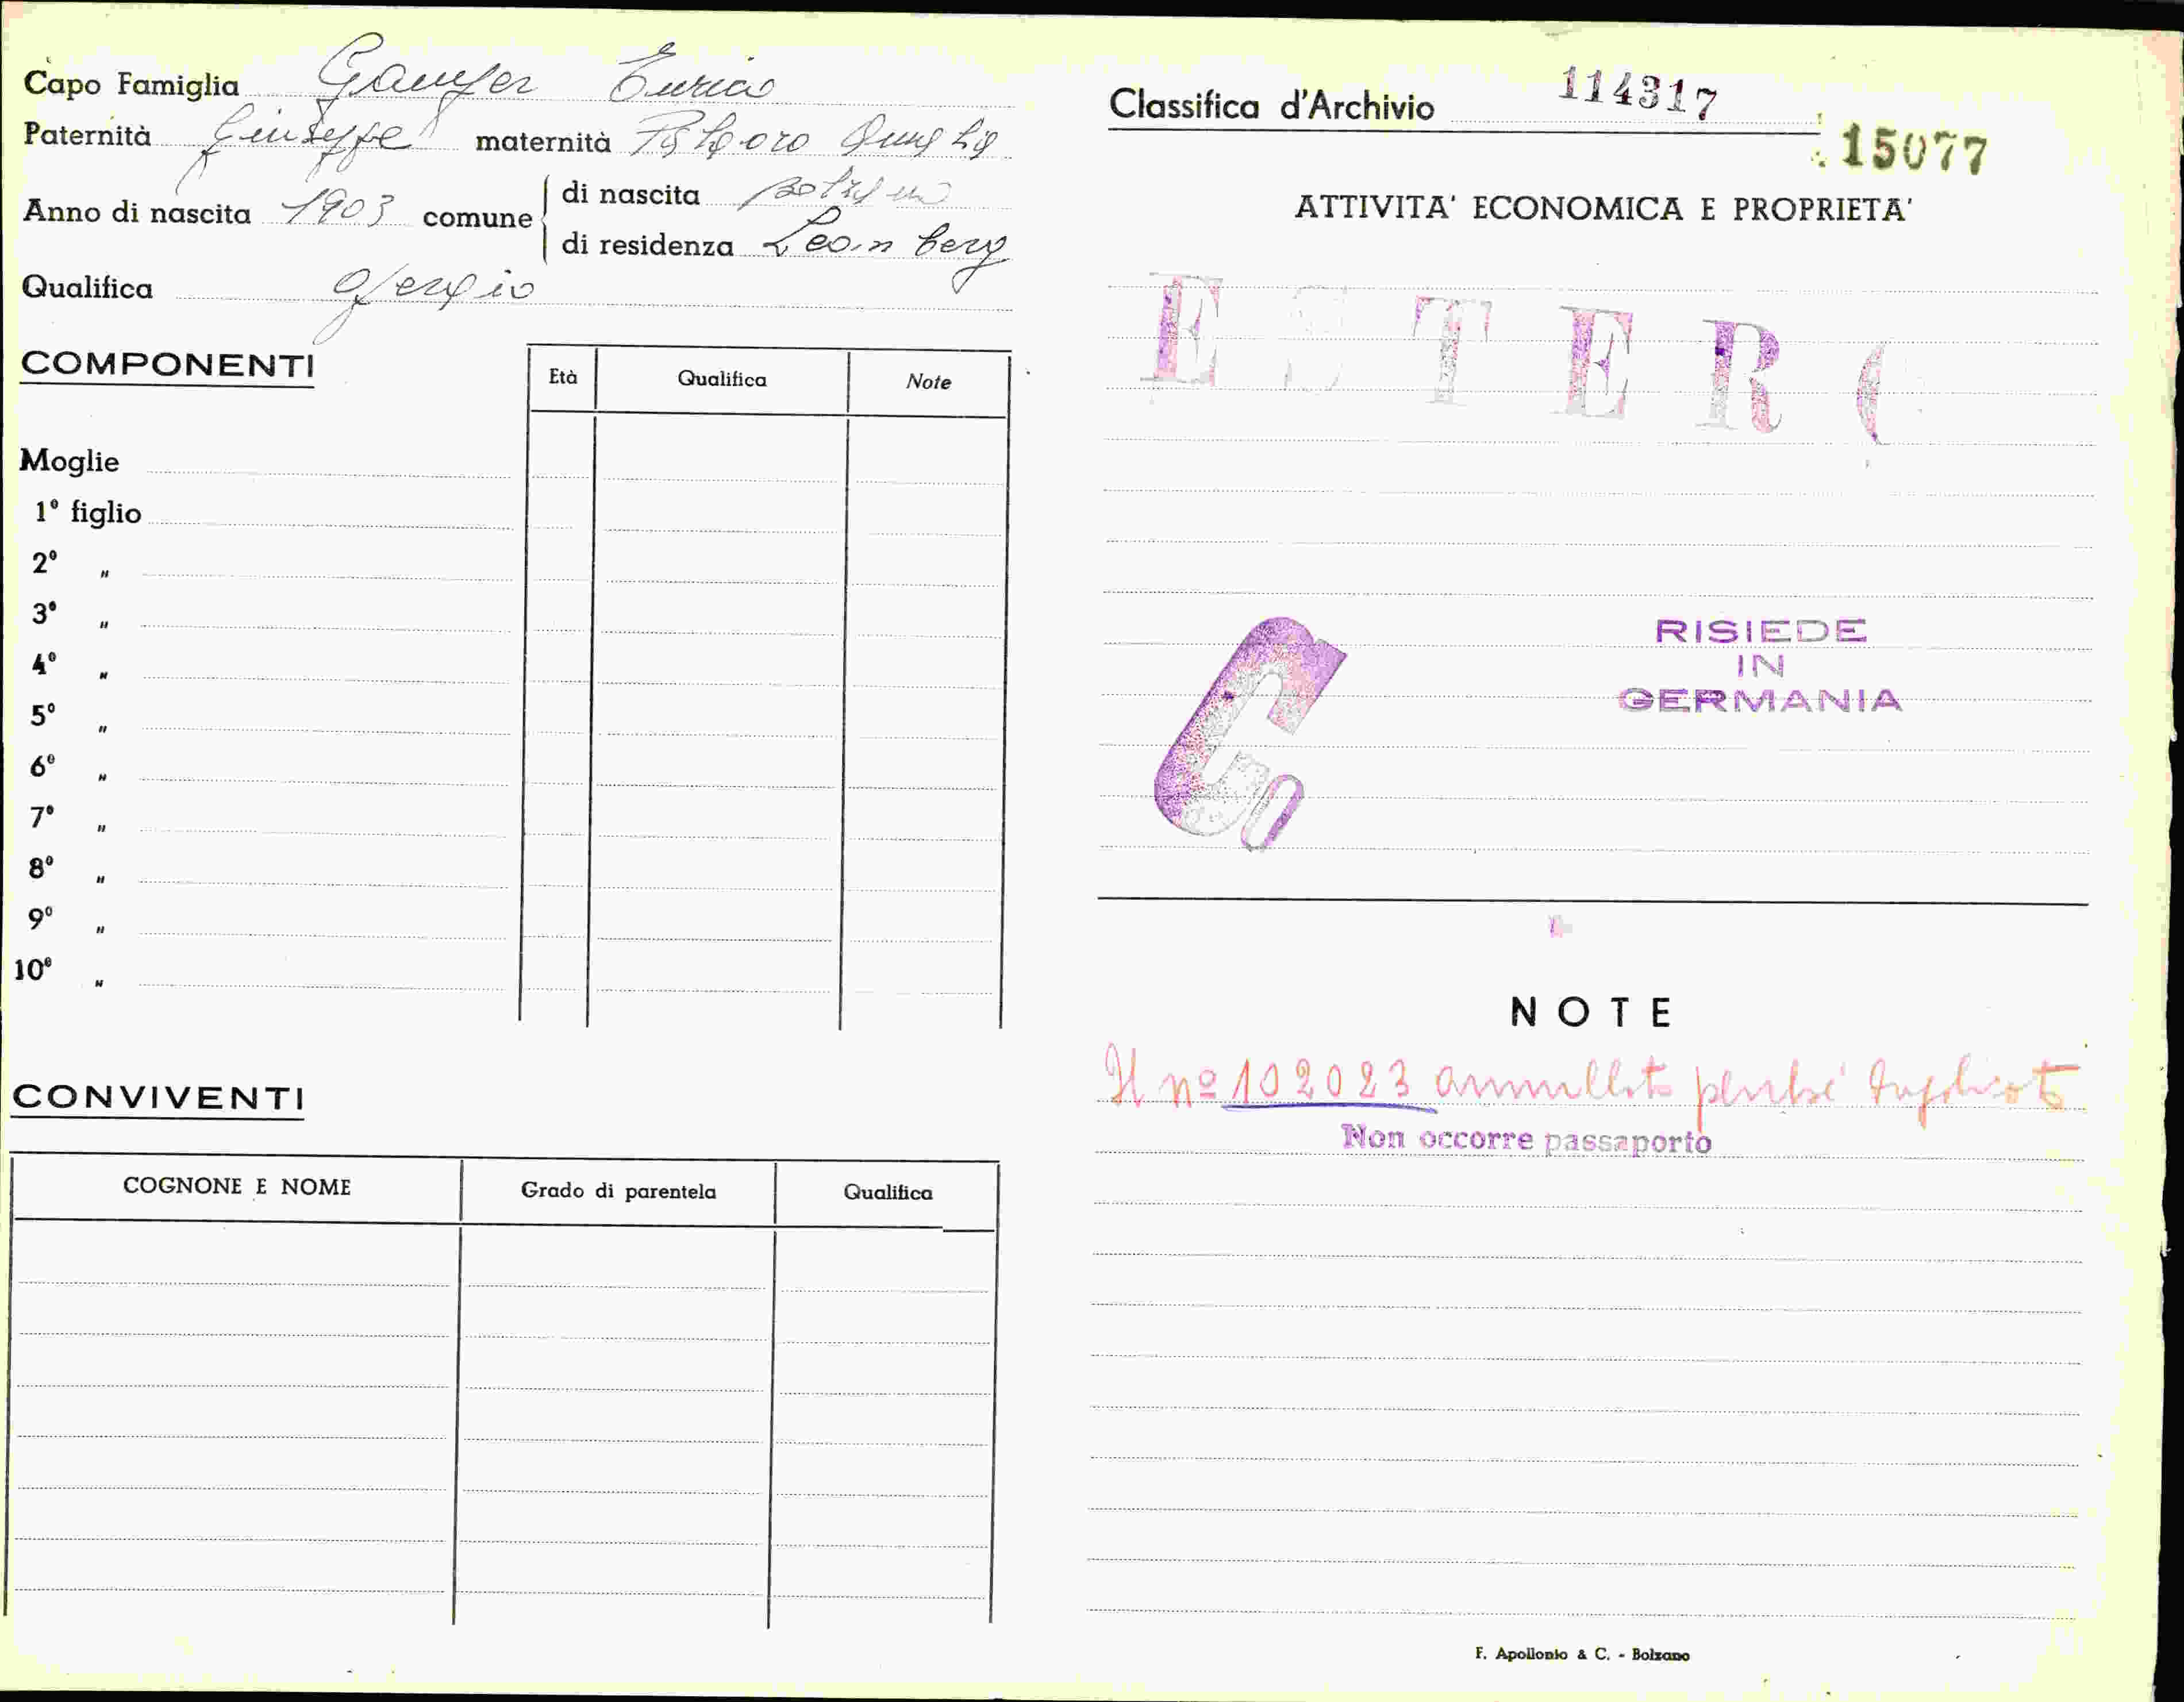 Capo Famiglia Gamper Enrico
Paternità Giuseppe maternità
Anno di nascita 1903 comune
di nascita Bolzano
di residenza Leonberg
Qualifica
COMPONENTI
Età Qualifica Note
Moglie
1º figlio
2º "
3º "
4º "
5º "
6º "
7º "
8º "
9º "
10º "
CONVIVENTI
COGNONE E NOME Grado di parentela Qualifica
Classifica d'Archivio 114317
15077
ATTIVITA' ECONOMICA E PROPRIETA'
ESTERO
RISIEDE
IN
GERMANIA
Co
NOTE
Il nº 102023 annullato perchè duplicato
Non occorre passaporto
F. Apollonio & C. - Bolzano